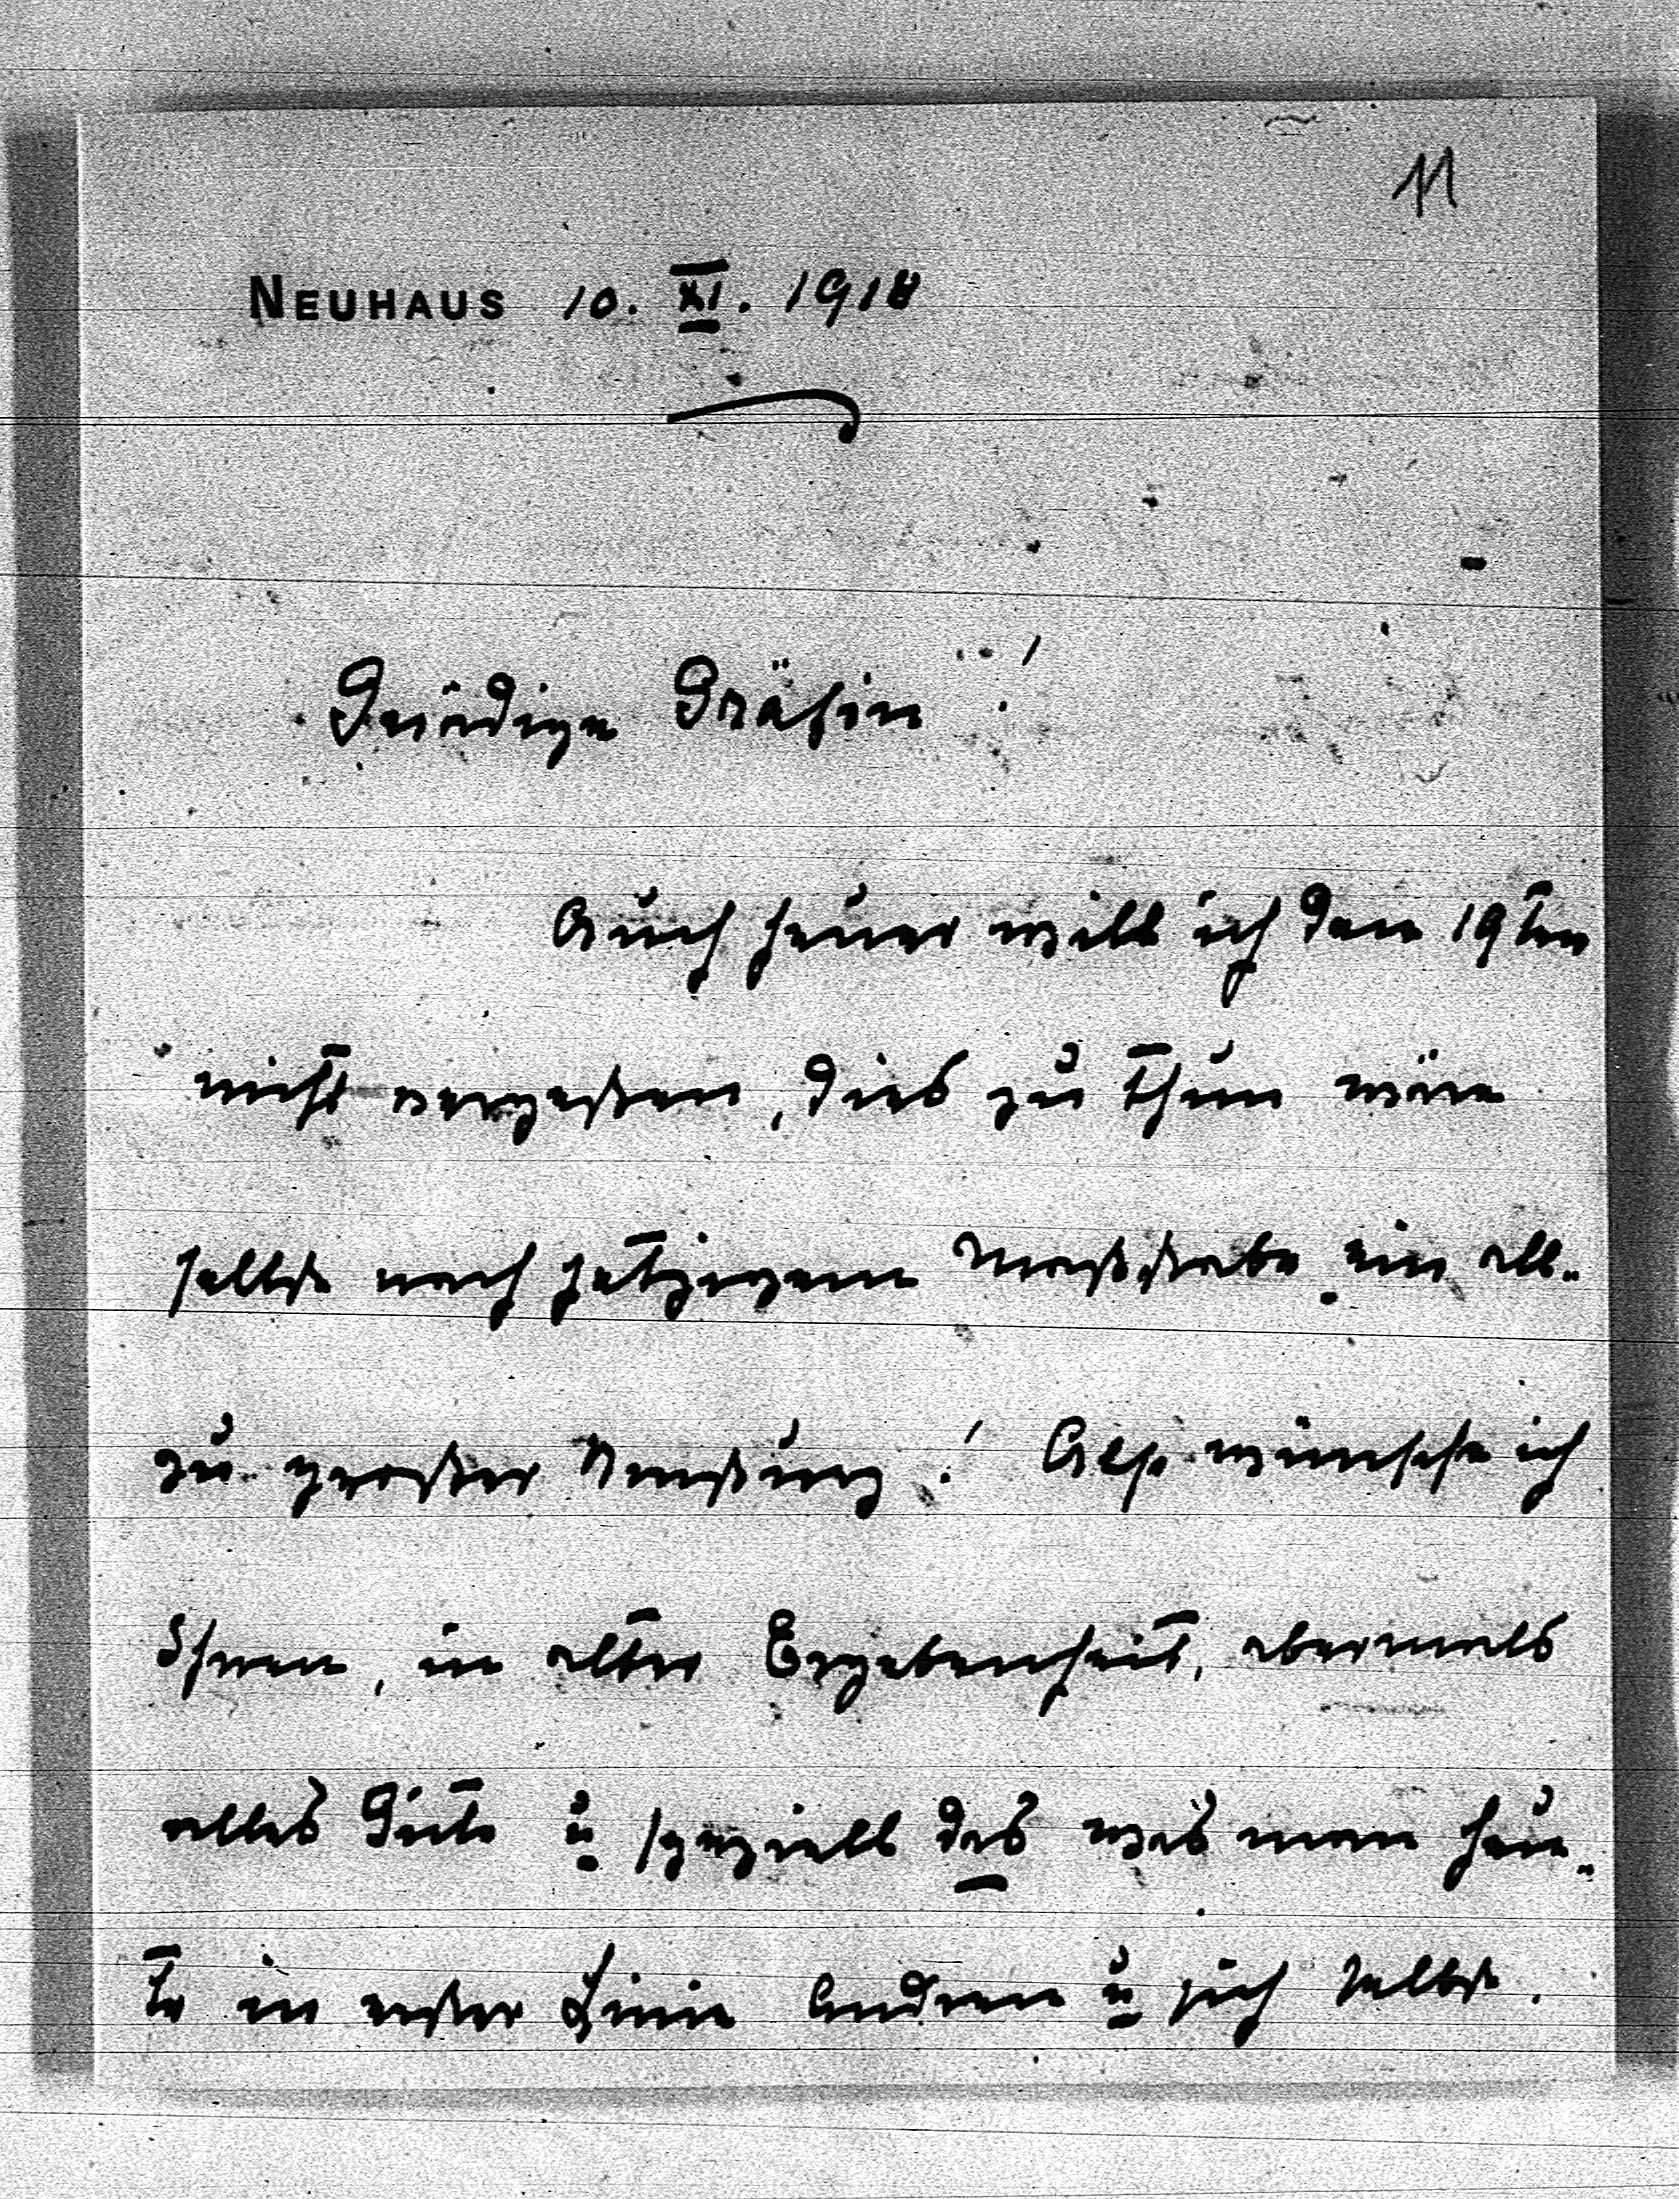 11
NEUHAUS 10. XI. 1918
Gnädige Gräfin!
Auch heuer will ich den 19ten
nicht vergeßen, dies zu thun wäre
selbst nach jetzigem Maßstabe ein all-
zu großer Umsturz! Also wünsche ich
Ihnen, in alter Ergebenheit, abermals
alles Gute u speziell das was man heu-
te in erster Linie Anderen u sich selbst